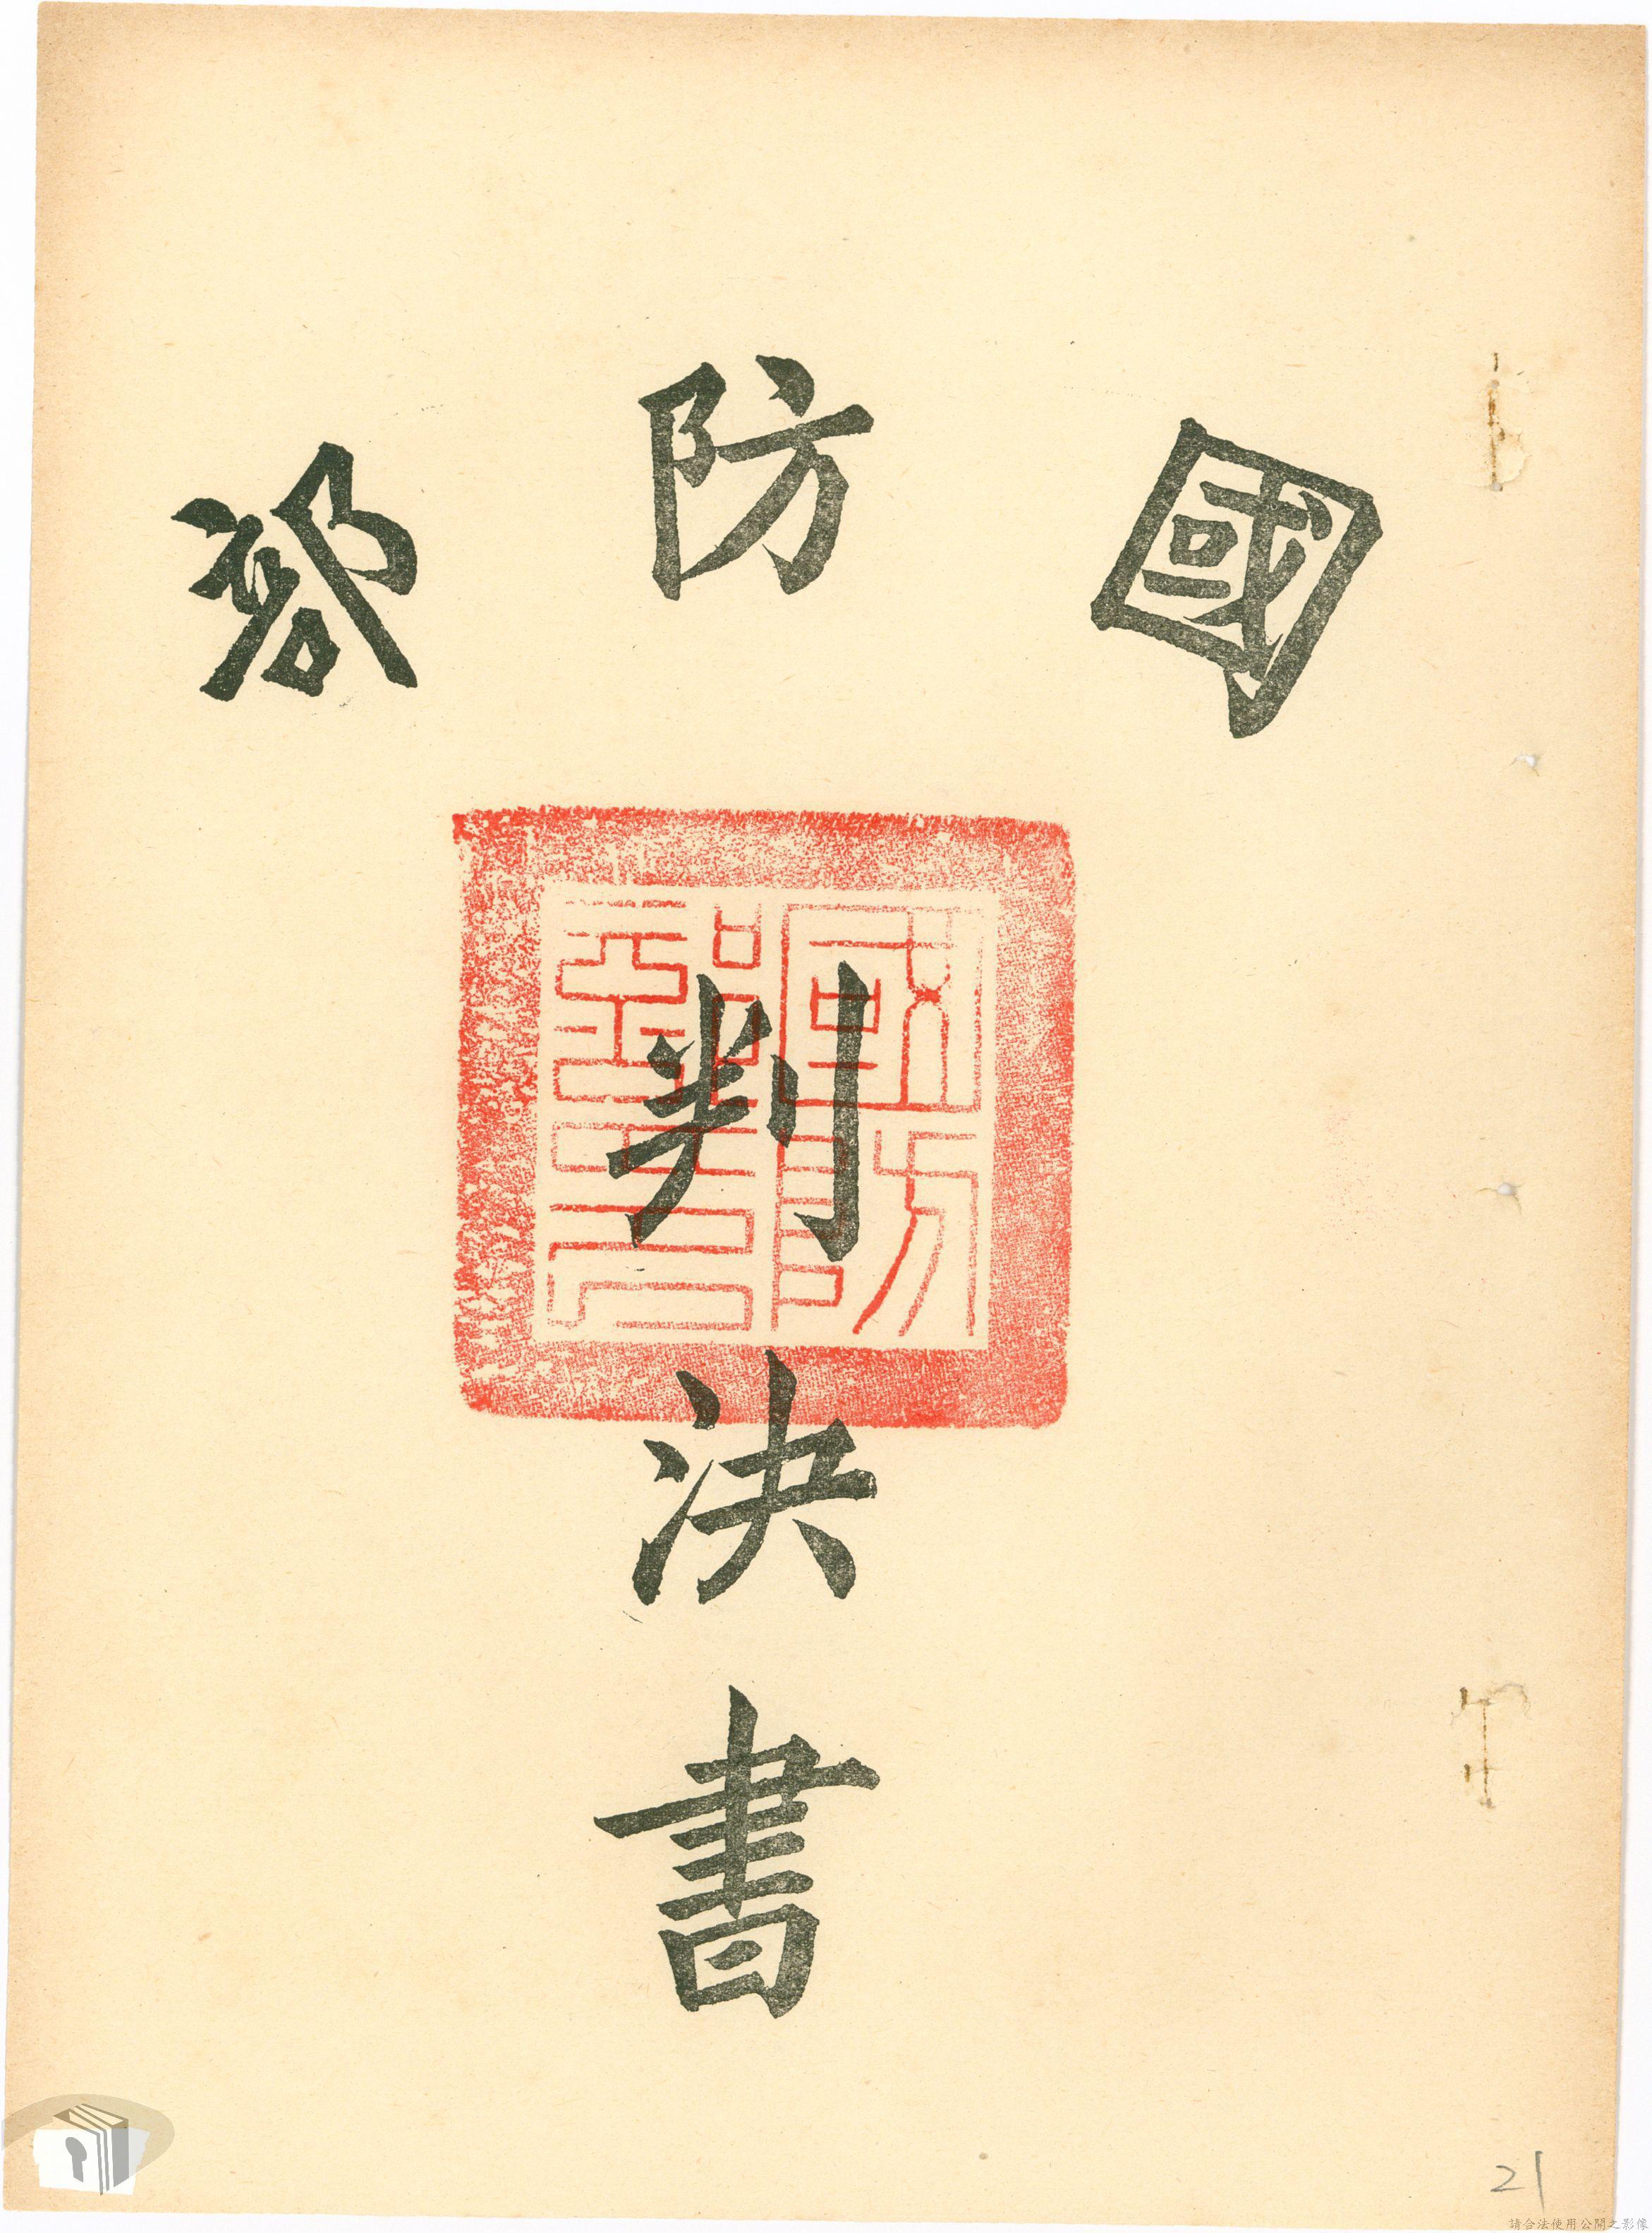 國防部
判決書
國防部印
21
請合法使用公開之影像